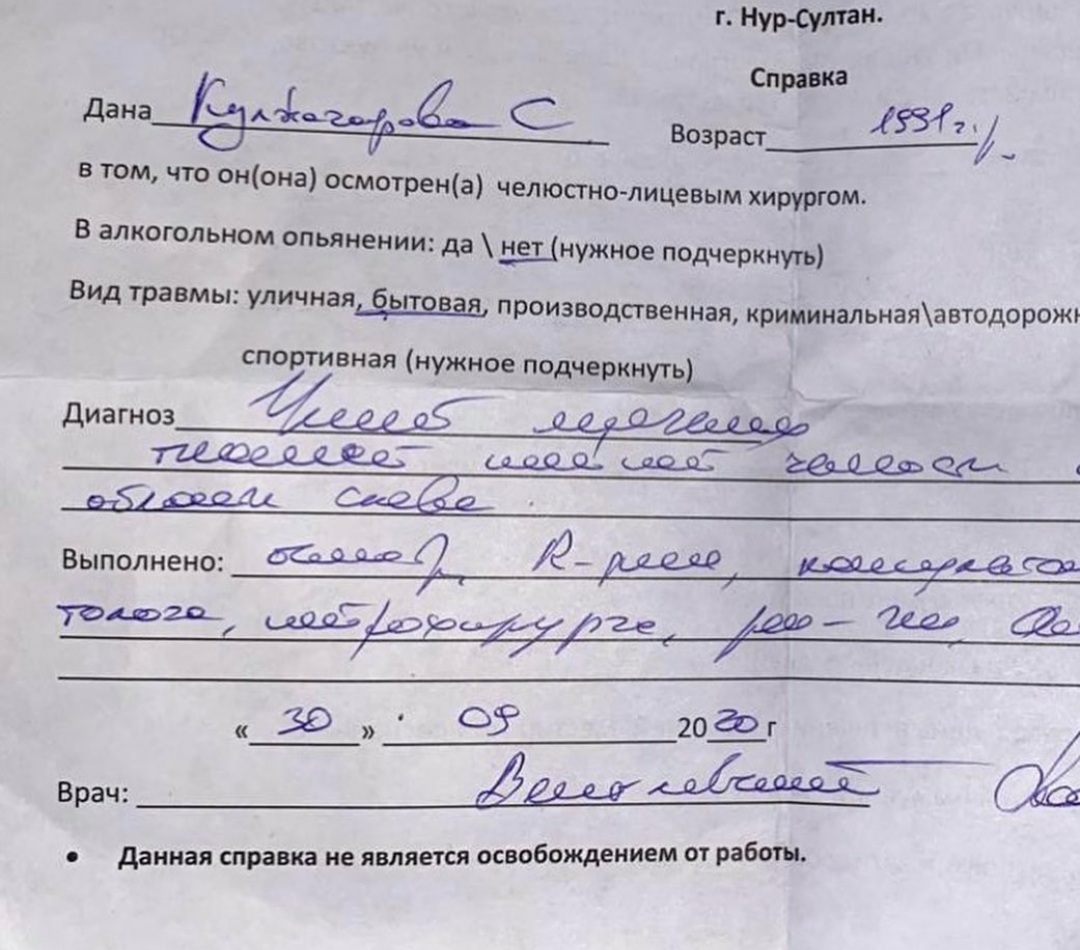 г. Нур-Султан.
Справка
Дана Кулжагарова С Возраст 1991 г.
в том, что он(она) осмотрен(а) челюстно-лицевым хирургом.
В алкогольном опьянении: да \ нет (нужное подчеркнуть)
Вид травмы: уличная, бытовая, производственная, криминальная\автодорожн
спортивная (нужное подчеркнуть)
Диагноз Ушиб
челюсти
области слева
Выполнено: осмотр, R-
толога, нейрохирурга,
« 30 » 09 2020 г
Врач:
• Данная справка не является освобождением от работы.